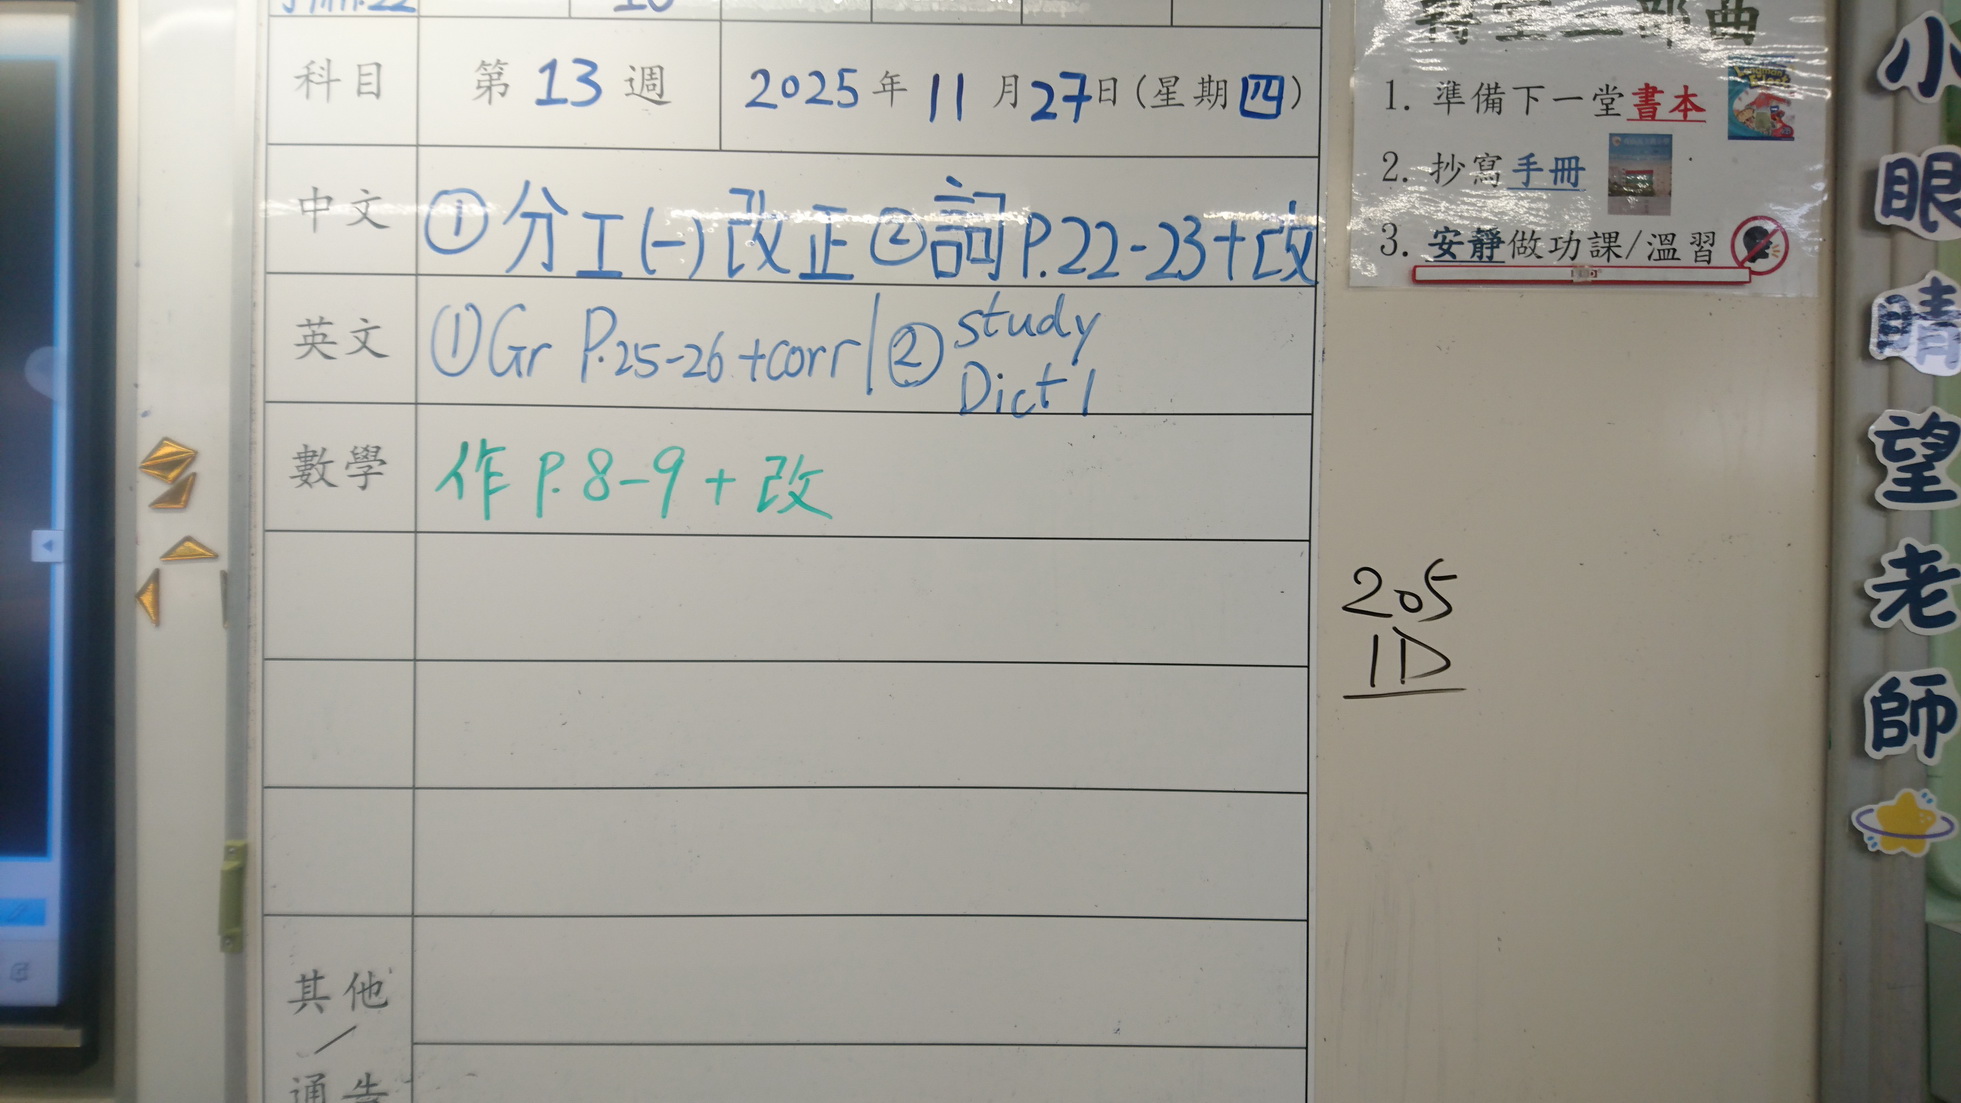 科目 第13週 2025年11月27日(星期四)
中文 ①分工(一)改正②詞P.22-23+改
英文 ①Gr P.25-26+corr|②study Dict 1
數學 作P.8-9+改
其他
／
通告
1. 準備下一堂書本
2. 抄寫手冊
3. 安靜做功課/溫習
205
1D
小眼睛望老師